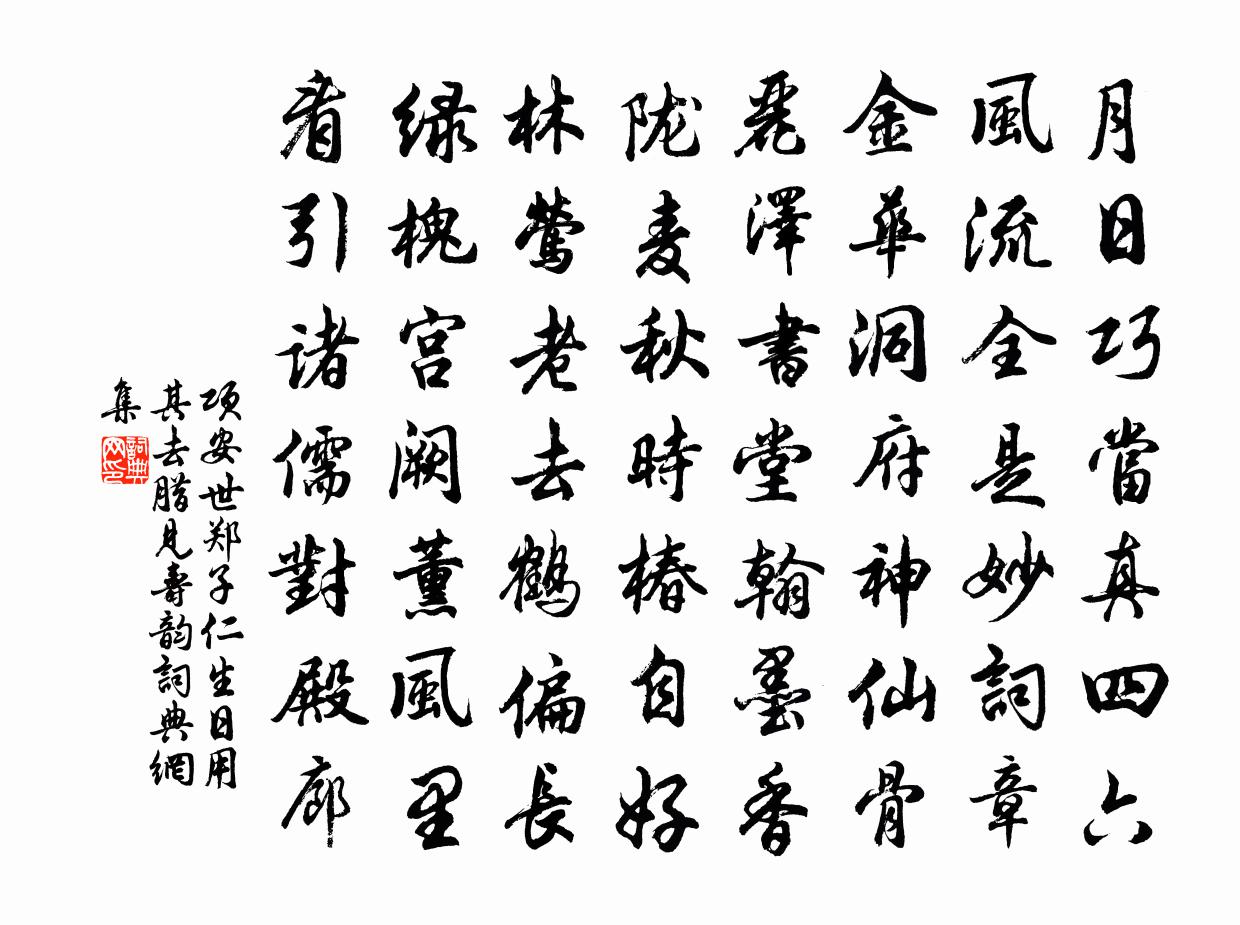 月日巧當真四六
風流全是妙詞章
金華洞府神仙骨
麗澤書堂翰墨香
陇麦秋時椿自好
林莺老去鶴偏長
绿槐宫阙薰風里
看引诸儒對殿廊
项安世郑子仁生日用
其去腊見壽韵詞典網
集
詞典
网印